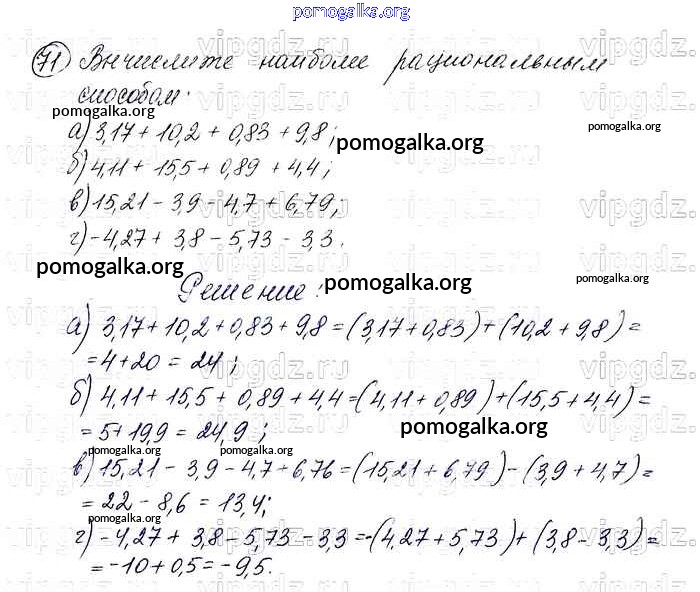 pomogalka.org
71 Вычислите наиболее рациональным
способом:
pomogalka.org
pomogalka.org
а) 3,17 + 10,2 + 0,83 + 9,8;
pomogalka.org
б) 4,11 + 15,5 + 0,89 + 4,4;
в) 15,21 - 3,9 - 4,7 + 6,79;
г) -4,27 + 3,8 - 5,73 - 3,3.
pomogalka.org
pomogalka.org
pomogalka.org
Решение:
а) 3,17 + 10,2 + 0,83 + 9,8 = (3,17 + 0,83) + (10,2 + 9,8) =
= 4 + 20 = 24;
б) 4,11 + 15,5 + 0,89 + 4,4 = (4,11 + 0,89) + (15,5 + 4,4) =
= 5 + 19,9 = 24,9;
pomogalka.org
pomogalka.org
pomogalka.org
в) 15,21 - 3,9 - 4,7 + 6,76 = (15,21 + 6,79) - (3,9 + 4,7) =
= 22 - 8,6 = 13,4;
pomogalka.org
г) -4,27 + 3,8 - 5,73 - 3,3 = -(4,27 + 5,73) + (3,8 - 3,3) =
= -10 + 0,5 = -9,5.
vipgdz.ru